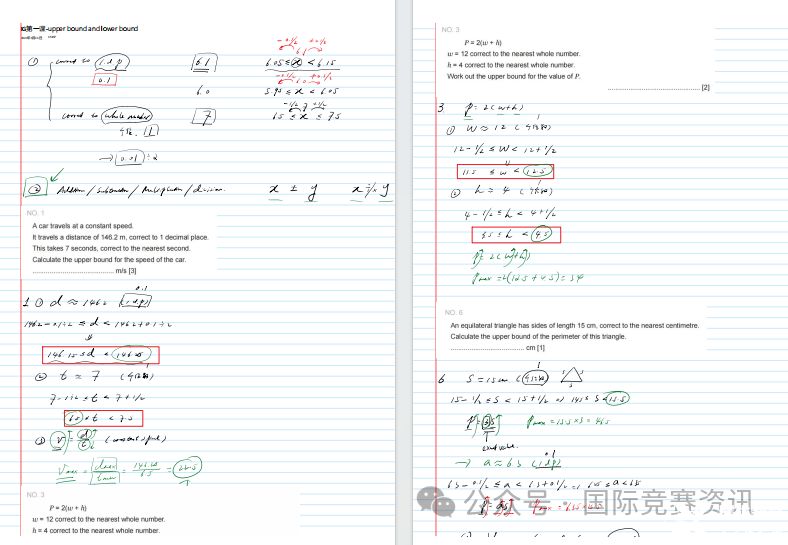 IG第一课-upper bound and lower bound
① correct to 1dp 6.1 6.05 ≤ x < 6.15
0.1
6.0 5.95 ≤ x < 6.05
correct to whole number 7 6.5 ≤ x ≤ 7.5
→ 0.01 ÷ 2
② Addition / Subtraction / Multiplication / division. x ± y x ÷/× y
NO. 1
A car travels at a constant speed.
It travels a distance of 146.2 m, correct to 1 decimal place.
This takes 7 seconds, correct to the nearest second.
Calculate the upper bound for the speed of the car.
............................................ m/s [3]
0.1
1 ① d ≈ 146.2 (1dp)
146.2 - 0.1÷2 ≤ d < 146.2 + 0.1÷2
146.15 ≤ d < 146.25
② t ≈ 7
7 - 1/2 ≤ t < 7 + 1/2
6.5 ≤ t < 7.5
③ V = d/t (constant speed)
Vmax = dmax/tmin = 146.25/6.5 = 22.5
NO. 3
P = 2(w + h)
w = 12 correct to the nearest whole number.
h = 4 correct to the nearest whole number.
NO. 3
P = 2(w + h)
w = 12 correct to the nearest whole number.
h = 4 correct to the nearest whole number.
Work out the upper bound for the value of P.
............................................ [2]
3 P = 2(w+h)
① W ≈ 12
12 - 1/2 ≤ W < 12 + 1/2
11.5 ≤ w < 12.5
② h ≈ 4
4 - 1/2 ≤ h < 4 + 1/2
3.5 ≤ h < 4.5
P = 2(w+h)
Pmax = 2(12.5 + 4.5) = 34
NO. 6
An equilateral triangle has sides of length 15 cm, correct to the nearest centimetre.
Calculate the upper bound of the perimeter of this triangle.
............................................ cm [1]
6 S = 15cm
15 - 1/2 ≤ S < 15 + 1/2 ⇒ 14.5 ≤ S < 15.5
P = 3S Pmax = 15.5 × 3 = 46.5
exact value.
0.1
→ a ≈ 6.3 (1dp)
公众号 · 国际竞赛资讯